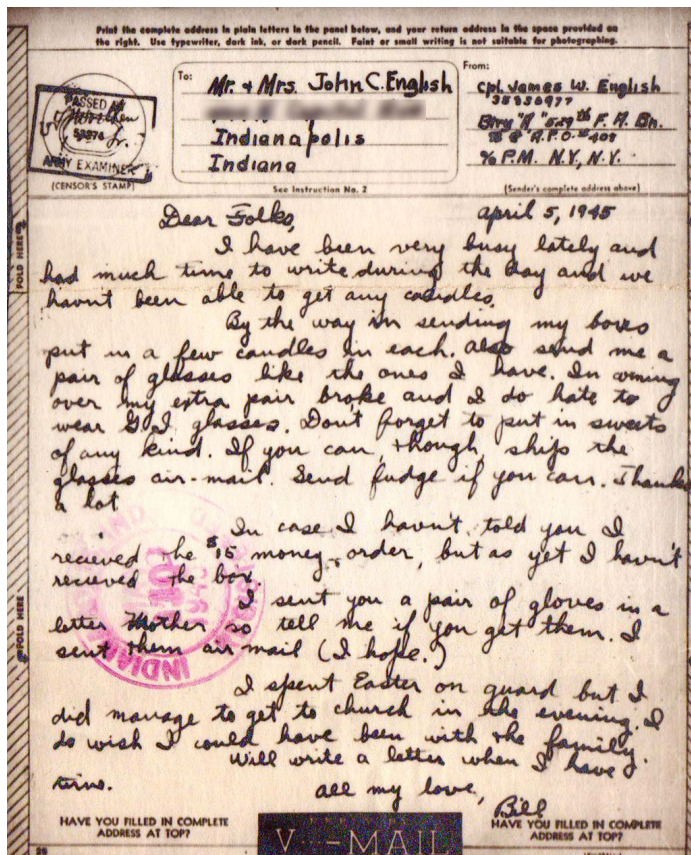 Print the complete address in plain letters in the panel below, and your return address in the space provided on
the right. Use typewriter, dark ink, or dark pencil. Faint or small writing is not suitable for photographing.
To:
Mr. & Mrs. John C. English
Indianapolis
Indiana
From:
Cpl. James W. English
35836977
Btry "A" 529th F. A. Bn.
A.P.O. 409
% P.M. N.Y., N.Y.
PASSED BY
Jr.
ARMY EXAMINER
(CENSOR'S STAMP)
See Instruction No. 2
(Sender's complete address above)
FOLD HERE
Dear Folks,
April 5, 1945
I have been very busy lately and
had much time to write during the day and we
havnt been able to get any candles.
By the way in sending my boxes
put in a few candles in each. Also send me a
pair of glasses like the ones I have. In coming
over my extra pair broke and I do hate to
wear G I glasses. Dont forget to put in sweets
of any kind. If you can, though, ship the
glasses air-mail. Send fudge if you can. Thanks
a lot
In case I havn't told you I
recieved the $15 money order, but as yet I havn't
recieved the box.
I sent you a pair of gloves in a
letter Mother so tell me if you get them. I
sent them air mail (I hope.)
I spent Easter on guard but I
did manage to get to church in the evening. I
do wish I could have been with the family.
Will write a letter when I have
time.
all my love,
Bill
FOLD HERE
HAVE YOU FILLED IN COMPLETE
ADDRESS AT TOP?
V···—MAIL
HAVE YOU FILLED IN COMPLETE
ADDRESS AT TOP?